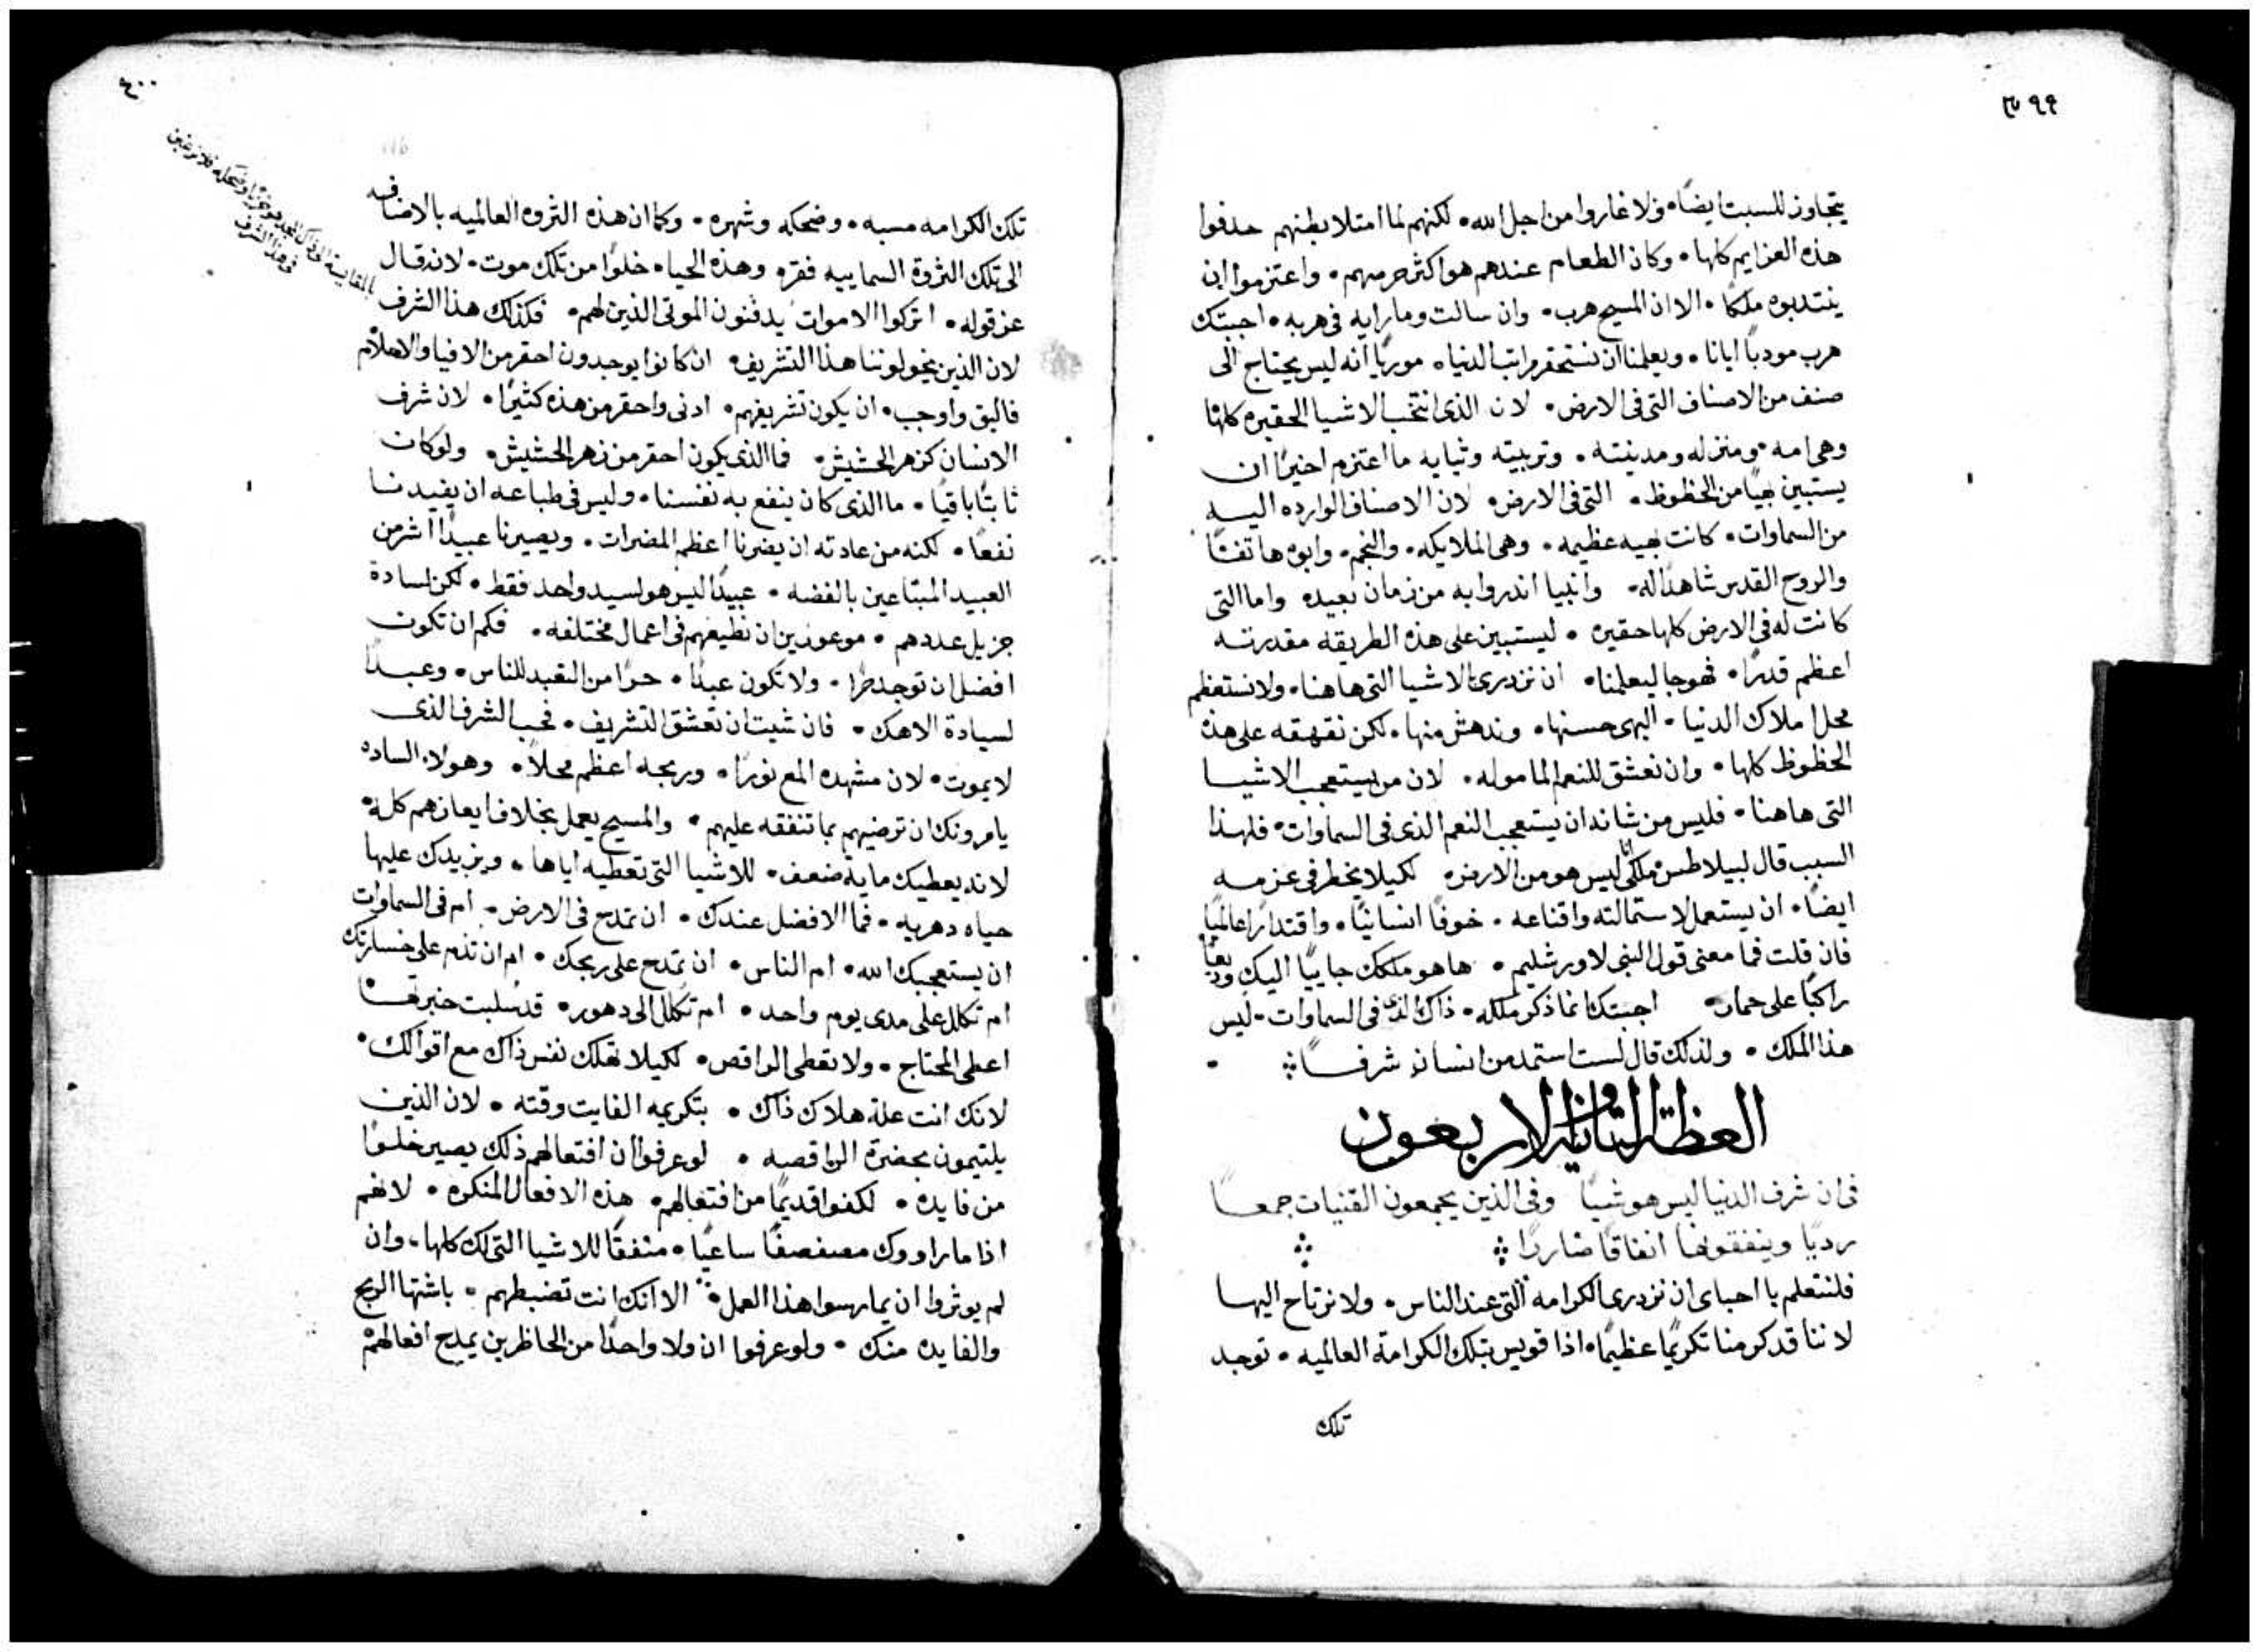 ٣٩٩
يتجاوز للسبت ايضًا، ولا غاروا من اجل الله، لكنهم لما امتلا بطنهم حذفوا
هذه العزايم كلها، وكان الطعام عندهم هو اكثر حرصهم، واعتزموا ان
ينتدبوه ملكًا، الا ان المسيح هرب، وان سالت وما رايه في هربه، اجبتك
هرب مودبًا ايانا، ويعلمنا ان نستحقر مراتب الدنيا، موريًا انه ليس يحتاج الى
صنف من الاصناف التي في الارض، لان الذي انتخب الاشيا الحقيره كلها
وهي امه ومنزله ومدينته، وتربيته وثيابه ما اعتزم اخيرًا ان
يستبين بهيًا من الحظوظ، التي في الارض، لان الاصناف الوارده اليه
من السماوات، كانت بهيه عظيمه، وهي الملايكه، والنجم، وابوه هاتفًا
والروح القدس شاهدًا له، وانبيا انذروا به من زمان بعيده واما التي
كانت له في الارض كلها حقيره، ليستبين على هذه الطريقه مقدرته
اعظم قدرًا، فهو جا ليعلمنا، ان نزدري الاشيا التي هاهنا، ولا نستعظم
محل املاك الدنيا، البهي حسنها، وندهش منها، لكن نقهقه على هذه
الحظوظ كلها، وان نعشق للنعم المامولة، لان من يستعجب الاشيا
التي هاهنا، فليس من شانه ان يستعجب النعم الذي في السماوات، فلهذا
السبب قال لبيلاطس ملكي انا ليس هو من الارض، لكيلا يخطر في عزمه
ايضًا، ان يستعمل لاستمالته واقناعه، خوفًا انسانيًا، واقتدارًا عالميًا
فان قلت فما معنى قول النبي لاورشليم، ها هو ملكك جاييًا اليك وديعًا
راكبًا على حمار، اجبتك انما ذكر ملكه، ذاك الذي في السماوات، ليس
هذا الملك، ولذلك قال لست استمد من انسان شرفًا
العظة الثانية والاربعون
في ان شرف الدنيا ليس هو شيًا وفي الذين يجمعون القنيات جمعًا
رديًا وينفقونها انفاقًا ضاردًا
فلنتعلم يا احباى ان نزدري الكرامه التي عند الناس، ولا نرتاح اليها
لاننا قد كرمنا تكريمًا عظيمًا، اذا قويس بتلك الكرامة العالميه، توجد
تلك
٤٠٠
تلك الكرامه مسبه، وضحكه وشهره، وكما ان هذه الثروه العالميه بالاضافه
الى تلك الثروة السماييه فقره وهذه الحياه خلوًا من تلك موت، لانه قال
عز قوله، اتركوا الاموات يدفنون الموتى الذين لهم، فكذلك هذا الشرف
لان الذين يخولوننا هذا التشريف، ان كانوا يوجدون احقر من الافيا والاحلام
فاليق واوجب، ان يكون تشريفهم، ادنى واحقر من هذه كثيرًا، لان شرف
الانسان كزهر الحشيش، فما الذي يكون احقر من زهر الحشيش، ولو كان
ثابتًا باقيًا، ما الذي كان ينفع به نفسنا، وليس في طباعه ان يفيدنا
نفعًا، لكنه من عادته ان يضرنا اعظم المضرات، ويصيرنا عبيدًا اشر من
العبيد المبتاعين بالفضه، عبيدًا ليس هو لسيد واحد فقط، لكن لسادة
جزيل عددهم، موعوزين ان نطيعهم في اعمال مختلفه، فكم ان تكون
افضل ان توجد حرًا، ولا تكون عبدًا، حرًا من التعبد للناس، وعبدًا
لسيادة الاهك، فان شيت ان تعشق التشريف، فحب الشرف الذي
لا يموت، لان مشهده المع نورًا، وربحه اعظم محلًا، وهولاء الساده
يامرونك ان ترضيهم بما تنفقه عليهم، والمسيح يعمل بخلاف ايعازهم كله،
لانه يعطيك مايه ضعف، للاشيا التي تعطيه اياها، ويزيدك عليها
حياه دهريه، فما الافضل عندك، ان تمدح في الارض، ام في السماوات
ان يستعجبك الله، ام الناس، ان تمدح على ربحك، ام ان تذم على خسارتك
ام تكلل على مدى يوم واحد، ام تكلل الى دهور،
اعطي المحتاج، ولا تعطي الراقص، لكيلا تهلك نفس ذاك مع اقوالك،
لانك انت علة هلاك ذاك، بتكريمه الفايت وقته، لان الذين
يلتيمون بحضرة الراقصه، لو عرفوا ان افتعالهم ذلك يصير خلوًا
من فايده، لكفوا قديمًا من افتعالهم، هذه الافعال المنكره، لانهم
اذا ما راووك مصفصفًا ساعيًا، منفقًا للاشيا التي لك كلها، وان
لم يوثروا ان يمارسوا هذا العمل، الا انك انت تضبطهم، باشتها الربح
والفايده منك، ولو عرفوا ان ولا واحدًا من الحاظرين يمدح افعالهم